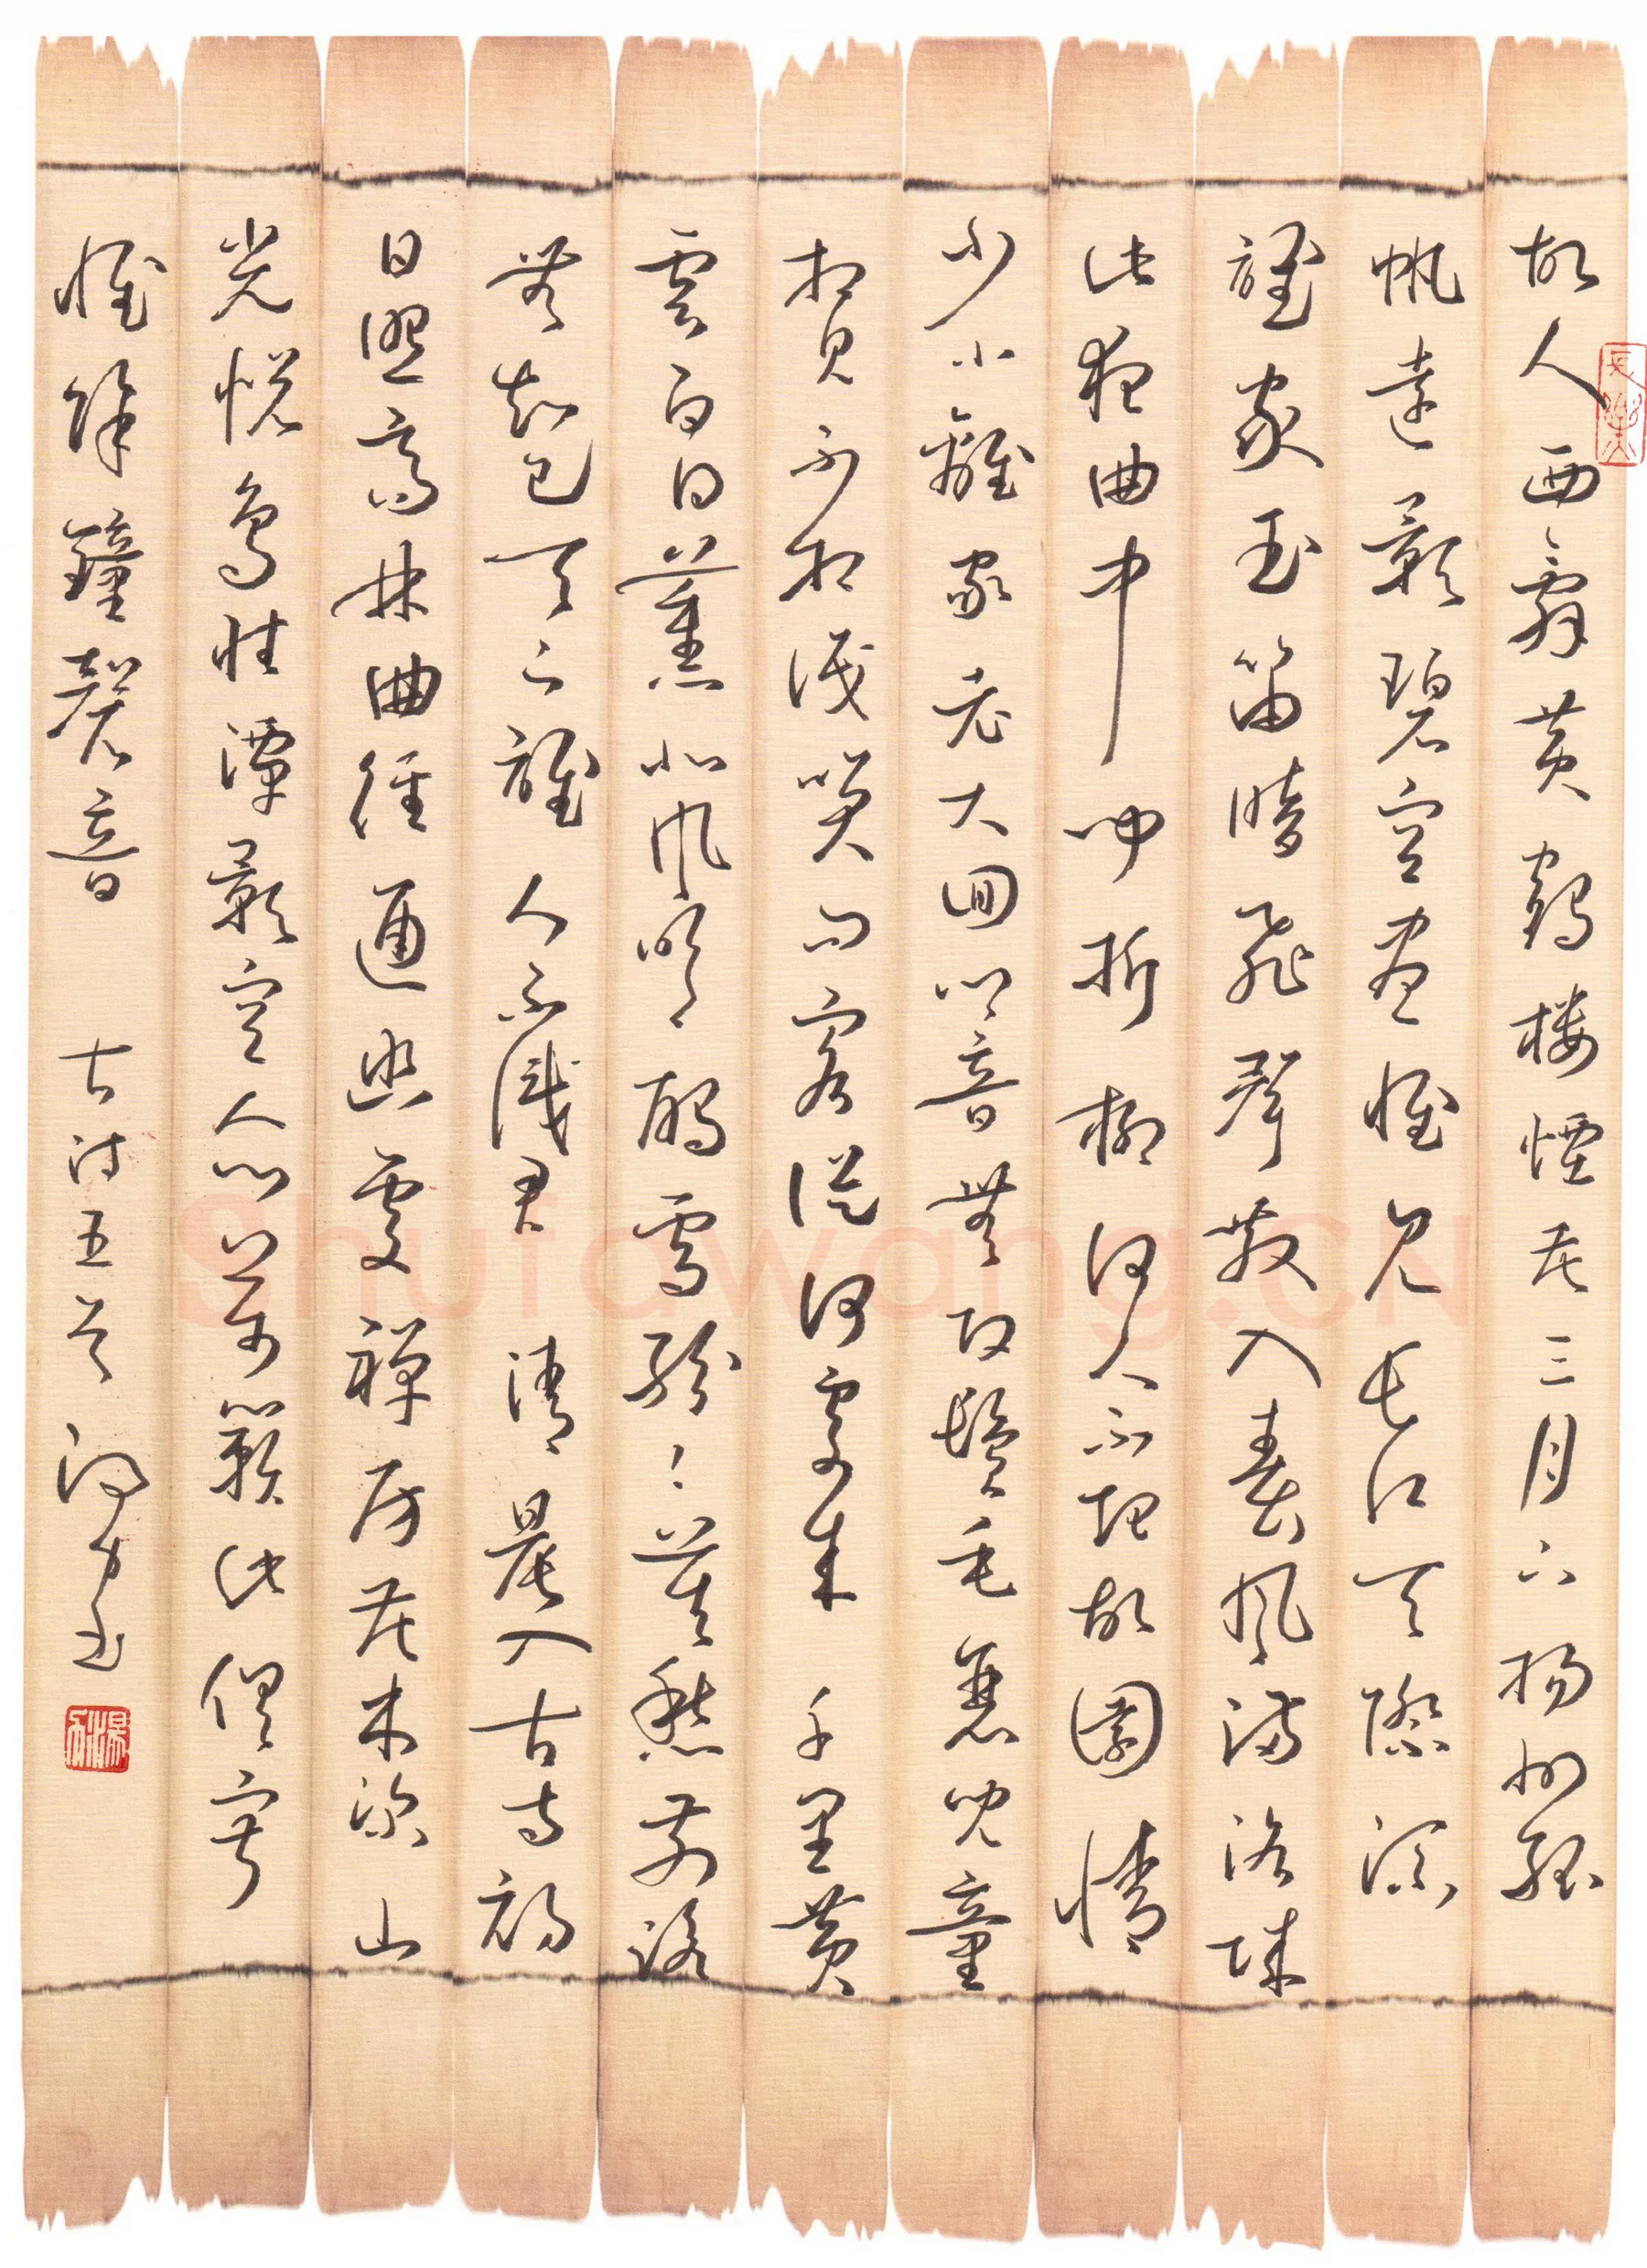 故人西辭黃鶴楼煙花三月下揚州孤
帆遠影碧空盡惟見長江天際流
誰家玉笛暗飛聲散入春風滿洛城
此夜曲中聞折柳何人不起故園情
少小離家老大回鄉音無改鬢毛衰兒童
相見不相識笑問客從何處來 千里黃
雲白日薰北風吹雁雪紛紛莫愁前路
無知己天下誰人不識君 清晨入古寺初
日照高林曲徑通幽處禪房花木深山
光悅鳥性潭影空人心萬籟此俱寂
惟餘鐘磬音 古詩五首
Shufawang.CN